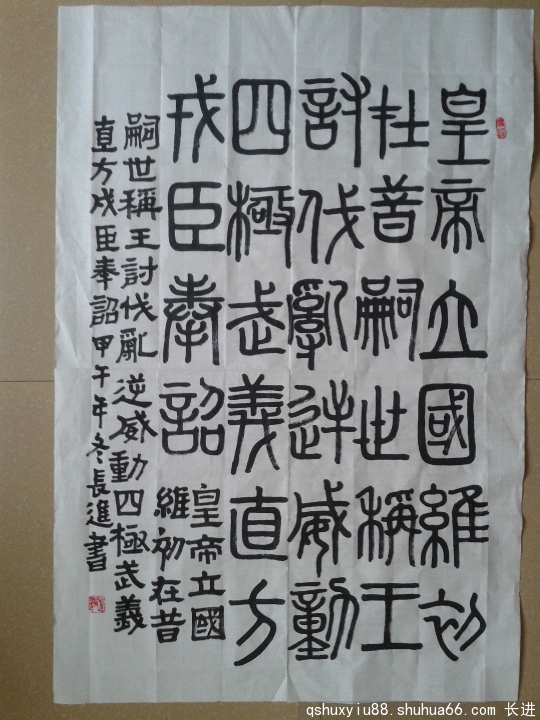 皇帝立國維初
在昔嗣世稱王
討伐亂逆威動
四極武義直方
戎臣奉詔
皇帝立國
維初在昔
嗣世稱王討伐亂逆威動四極武義
直方戎臣奉詔甲午年冬長進書
qshuxyiu88.shuhua66.com 长进